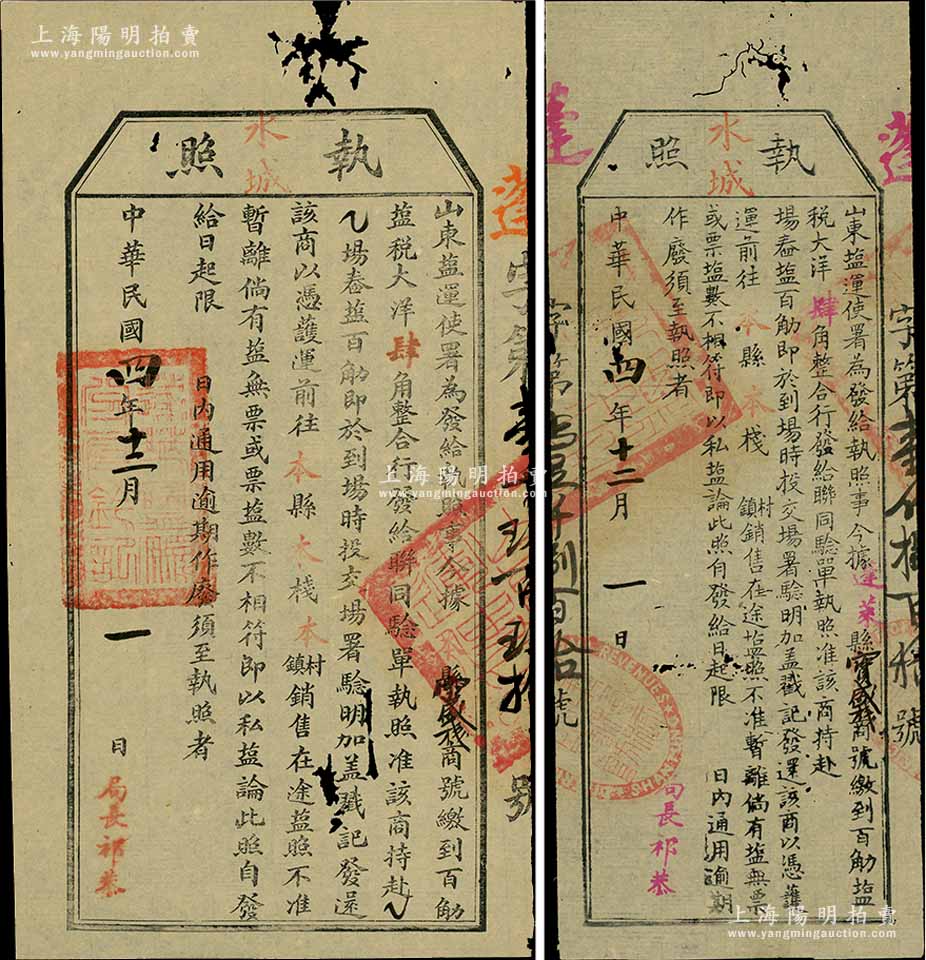 上海陽明拍賣
www.yangmingauction.com
執照
水城
蓬字第
號
山東塩運使署為發給執照事今據 縣寶盛棧商號繳到百觔
塩税大洋肆角整合行發給聯同驗單執照准該商持赴
場舂塩百觔即於到場時投交場署驗明加盖戳記發還
該商以憑護運前往本縣 棧本鎮村銷售在途塩照不准
暫離倘有塩無票或票塩數不相符即以私塩論此照自發
給日起限 日內通用逾期作廢須至執照者
中華民國四年十二月一日
局長祁恭
上海陽明拍賣
www.yangmingauction.com
執照
水城
蓬
字第
號
蓬
字第
號
山東塩運使署為發給執照事今據蓬萊縣寶盛棧商號繳到百觔塩
税大洋肆角整合行發給聯同驗單執照准該商持赴
場舂塩百觔即於到場時投交場署驗明加盖戳記發還該商以憑護
運前往本縣本棧 鎮村銷售在途塩照不准暫離倘有塩無票
或票塩數不相符即以私塩論此照自發給日起限 日內通用逾期
作廢須至執照者
中華民國四年十二月一日
局長祁恭
上海陽明拍賣
www.yangmingauction.com
上海陽明拍賣
www.yangmingauction.com